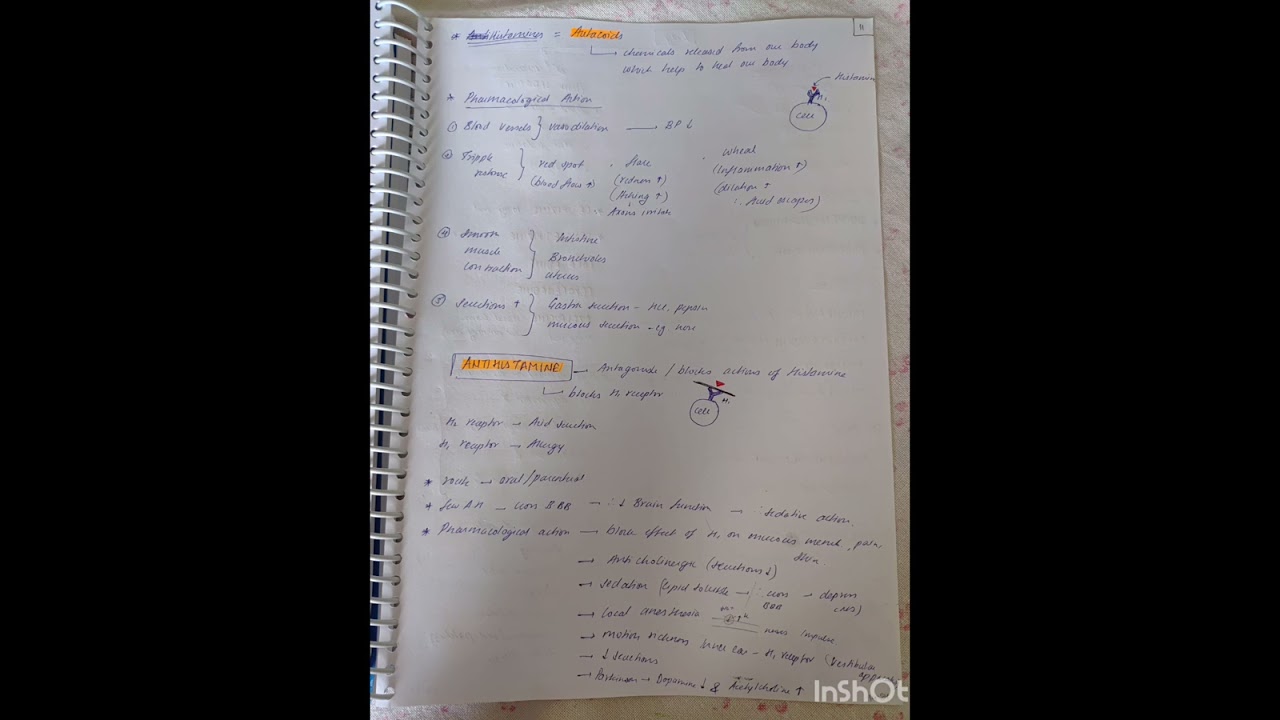 11
* Histamines = Autacoids
chemicals released from our body
which helps to heal our body
Histamin
H1
Cell
* Pharmacological Action
① Blood vessels } vasodilation → BP ↓
② Tripple } red spot . flare . wheal
(blood flow ↑) (redness ↑) (inflammation ↑)
(Itching ↑) (dilation ↑
Axons ∴ Fluid escapes)
④ Smooth
muscle
contraction
Intestine
Bronchioles
uterus
⑤ Secretions ↑ } Gastric secretion - HCl, pepsin
mucous secretion - eg nose
ANTIHISTAMINE → Antagonists / blocks actions of Histamine
blocks H1 receptor
H1
Cell
H2 receptor → Acid secretion
H1 receptor → Allergy
* route → oral/parenteral
* few A.H → cross BBB → ∴ ↓ Brain function → ∴ sedative action
* Pharmacological action → block effect of H1 on mucous memb, pain,
skin.
→ Anti cholinergic (secretions ↓)
→ Sedation (lipid soluble → ∴ cross → depress
BBB CNS)
→ Local anesthesia nerve impulse
→ motion sickness inner ear - H1 receptor (vestibular
→ ↓ secretions
→ Parkinson → Dopamine ↓ & Acetylcholine ↑
InShOt